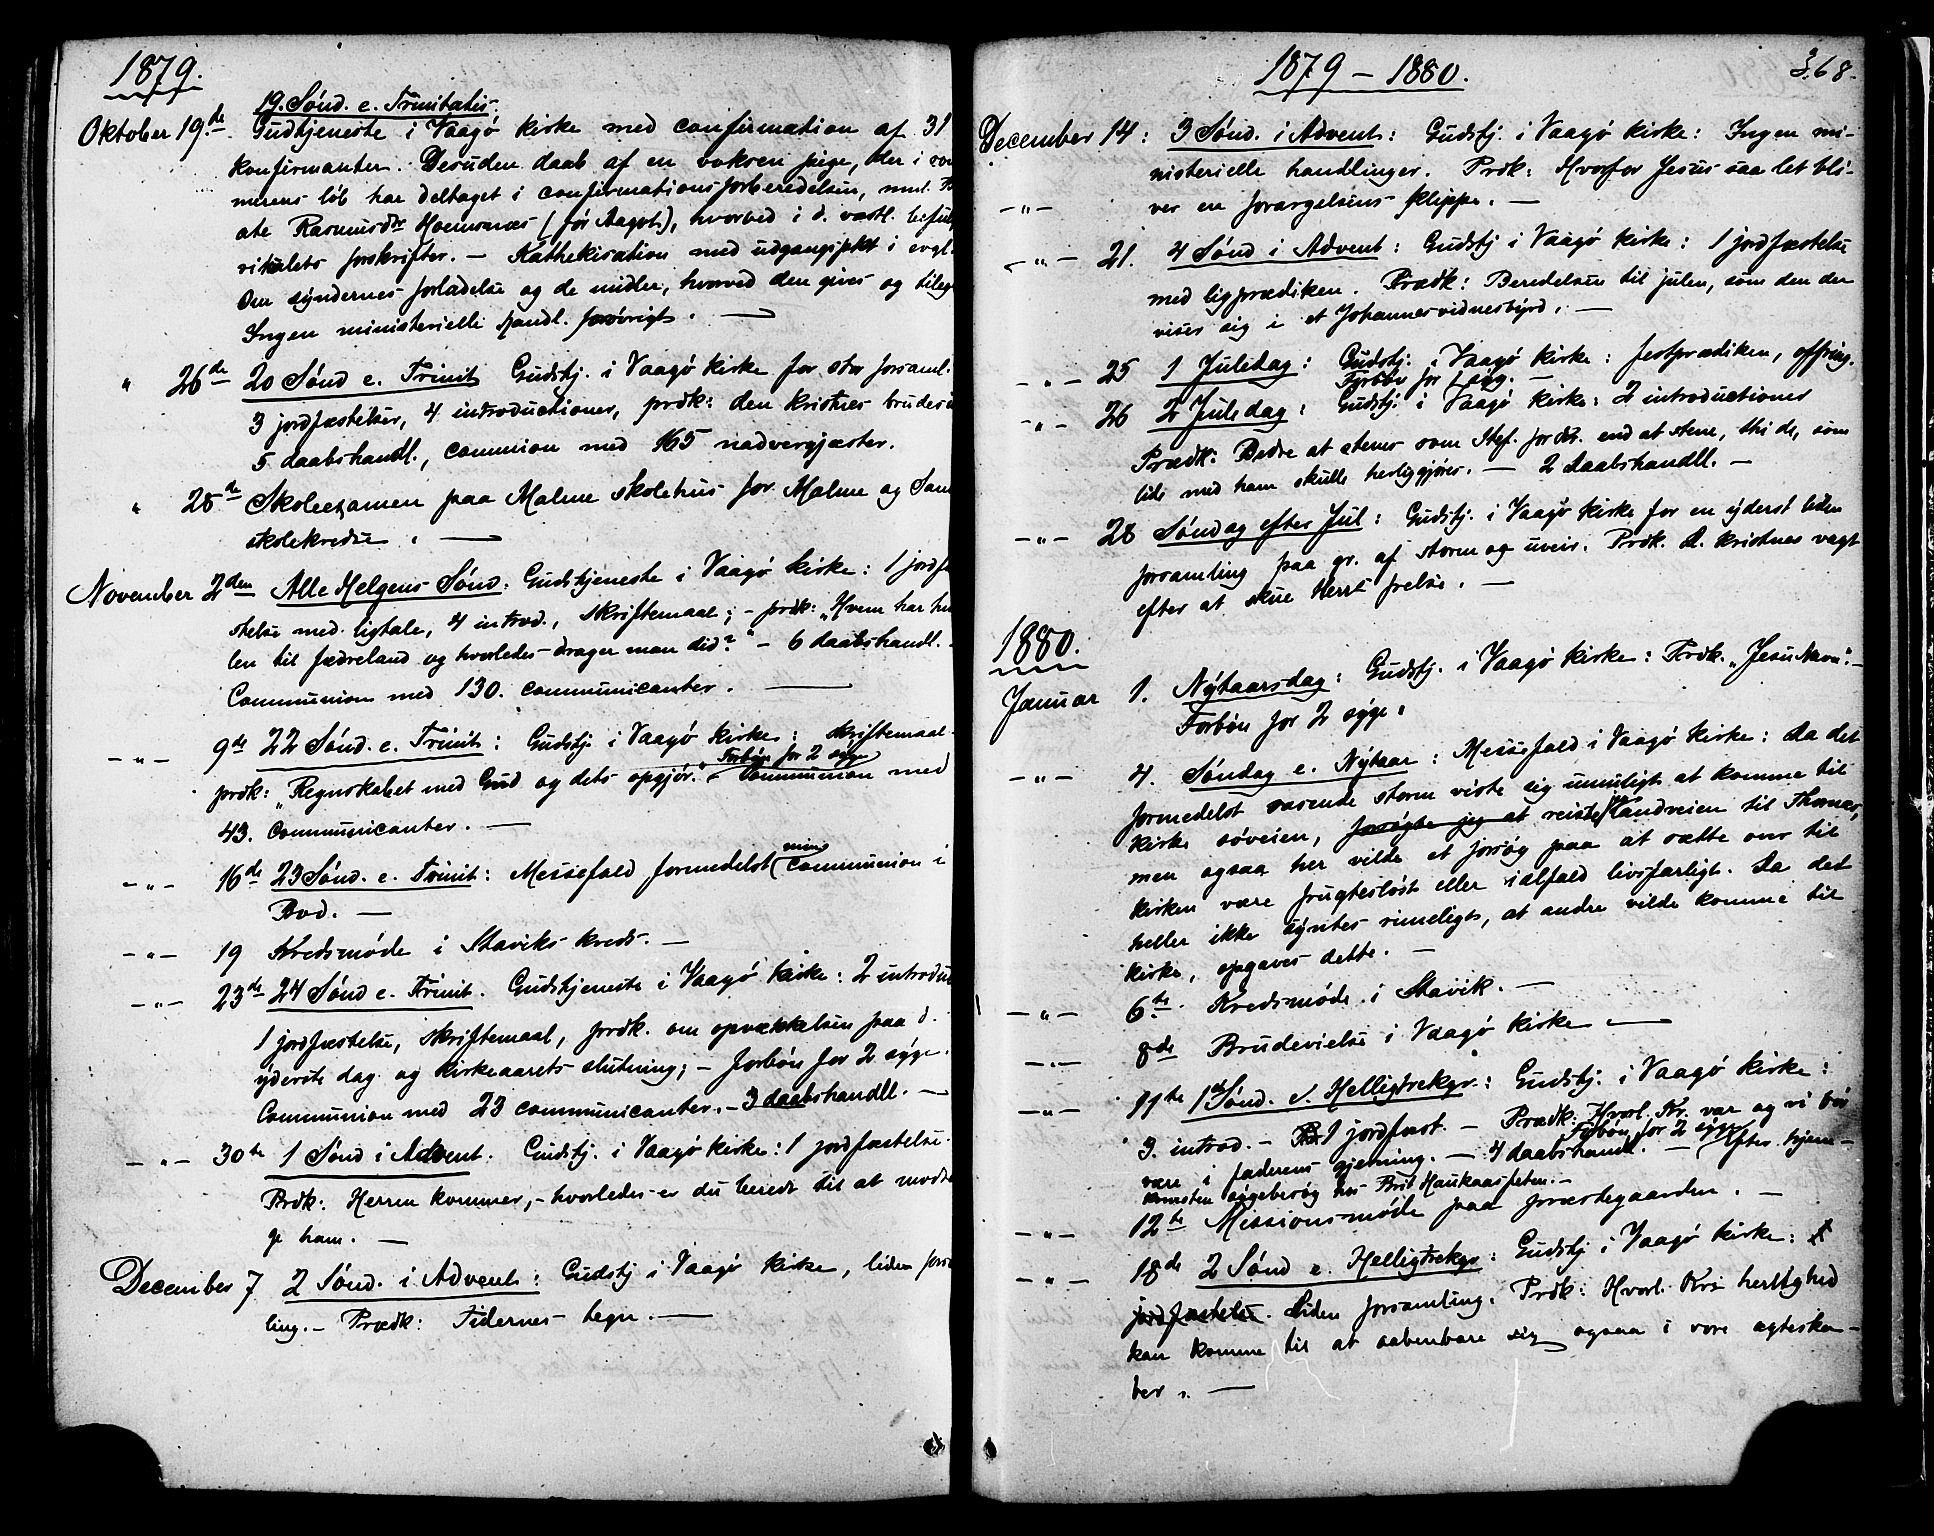 1879.
19. Sønd. e. Trinitatis.
Oktober 19.de Gudtjeneste i Vaagø kirke med confirmation af 31
konfirmanter. Desuden daab af en voksen pige, der i som
merens løb har deltaget i confirmationsforberedelsen, nml.
ate Rasmusdtr (før Aagot), hvorved i d. væstl.
forskrifter. – Kathekisation med udgangspkt i evgl.
Om syndernes forladelse og de midler, hvorved den gives og
Ingen ministerielle handl. forøvrigt. —
" 26de 20 Sønd e. Trinit Gudstj. i Vaagø kirke for stor forsaml.
3 jordfæstelser, 4 introductioner, prdk: den kristnes
5 daabshandl., communion med 165 nadvergjæster.
" 28de Skoleexamen paa Malme skolehus for Malme og
skolekredse. —
November 2den Alle Helgens Sønd: Gudstjeneste i Vaagø kirke: 1 jordfæ
stelse med ligtale, 4 introd., skriftemaal; – prdk: "Hvem har
len til fædreland og hvorledes drager man did?" – 6 daabshandl.
Communion med 130. communicanter. —
– " – 9de 22 Sønd. e. Trinit: Gudstj. i Vaagø kirke: skriftemaal.
Forbøn for 2 syge
prdk: "Regnskabet med Gud og dets opgjør." Communion med
43. communicanter. —
– " – 16de 23 Sønd. e. Trinit: Messefald formedelst min communion i
Bud. —
– " – 19 Kredsmøde i Staviks kreds. —
– " – 23de 24 Sønd e. Trinit. Gudstjeneste i Vaagø kirke: 2 introduc
1 jordfæstelse, skriftemaal, prdk. om opvækkelsen paa d.
yderste dag og kirkeaarets slutning; – forbøn for 2 syge.
Communion med 23 communicanter. – 3 daabshandl. —
– " – 30te 1 Sønd i Advent. Gudstj. i Vaagø kirke: 1 jordfæstelse.
Prdk: Herren kommer, – hvorledes er du beredt til at modta
ge ham. —
December 7 2 Sønd. i Advent: Gudstj i Vaagø kirke, liden forsa
ling. – Prædk: Tidernes tegn. —
1879 – 1880.
368.
December 14: 3 Sønd. i Advent: Gudstj. i Vaagø kirke: Ingen mi-
nisterielle handlinger. Prdk: Hvorfor Jesus saa let bli-
– " –
ver en forargelsens klippe. —
– " – 21. 4 Sønd i Advent: Gudstj i Vaagø kirke: 1 jordfæstelse
med ligprædiken. Prædk: Beredelsen til julen, som den der
viser sig i et Johannesvidnesbyrd. —
– " – 25 1 Juledag: Gudstj. i Vaagø kirke: festprædiken, offring.
Forbøn for 1 syg. —
– " – 26 2 Juledag: Gudstj. i Vaagø kirke: 2 introductioner
Prædk: Bedre at stenes som Stef. end at stene, thi de, som
lide med ham skulle herliggjøres. — 2 daabshandll. —
– " – 28 Søndag efter Jul: Gudstj. i Vaagø kirke for en yderst liden
forsamling paa gr. af storm og uveir. Prdk. d. kristnes vagt
efter at skue Herrs frelse. —
1880.
Januar 1. Nytaarsdag: Gudstj. i Vaagø kirke: Prdk. "Jesu Navn". –
Forbøn for 2 syge.
– " – 4. Søndag e. Nytaar: Messefald i Vaagø kirke: da det
formedelst rasende storm viste sig umuligt at komme til
kirke søveien, forsøgte jeg at reiste jeg landveien til Thornæs,
men ogsaa her vilde et forsøg paa at sætte over til
kirken være frugtesløst eller ialfald livsfarligt. Da det
heller ikke syntes rimeligt, at andre vilde komme til
kirke, opgaves dette. —
– " – 6te Kredsmøde i Stavik. —
– " – 8de Brudevielse i Vaagø kirke —
– " – 11te 1st Sønd. e. Helligtrekgr: Gudstj. i Vaagø kirke:
3. introd. – 1 jordfæst. – Prædk: Hvorl. Kr. var og vi bør
Forbøn for 2 syge
være i faderens gjerning. – 4 daabshandl. – Efter tjene-
sten sygebesøg hos Brit Haukaasfeten. –
– " – 12te Missionsmøde paa præstegaarden. —
– " – 18de 2 Sønd e. Helligtrekgr: Gudstj i Vaagø kirke: 1
jordfæstelse. Liden forsamling. Prdk: Hvorl. Krs herlighed
kan komme til at aabenbare sig ogsaa i vore ægteska-
ber. —